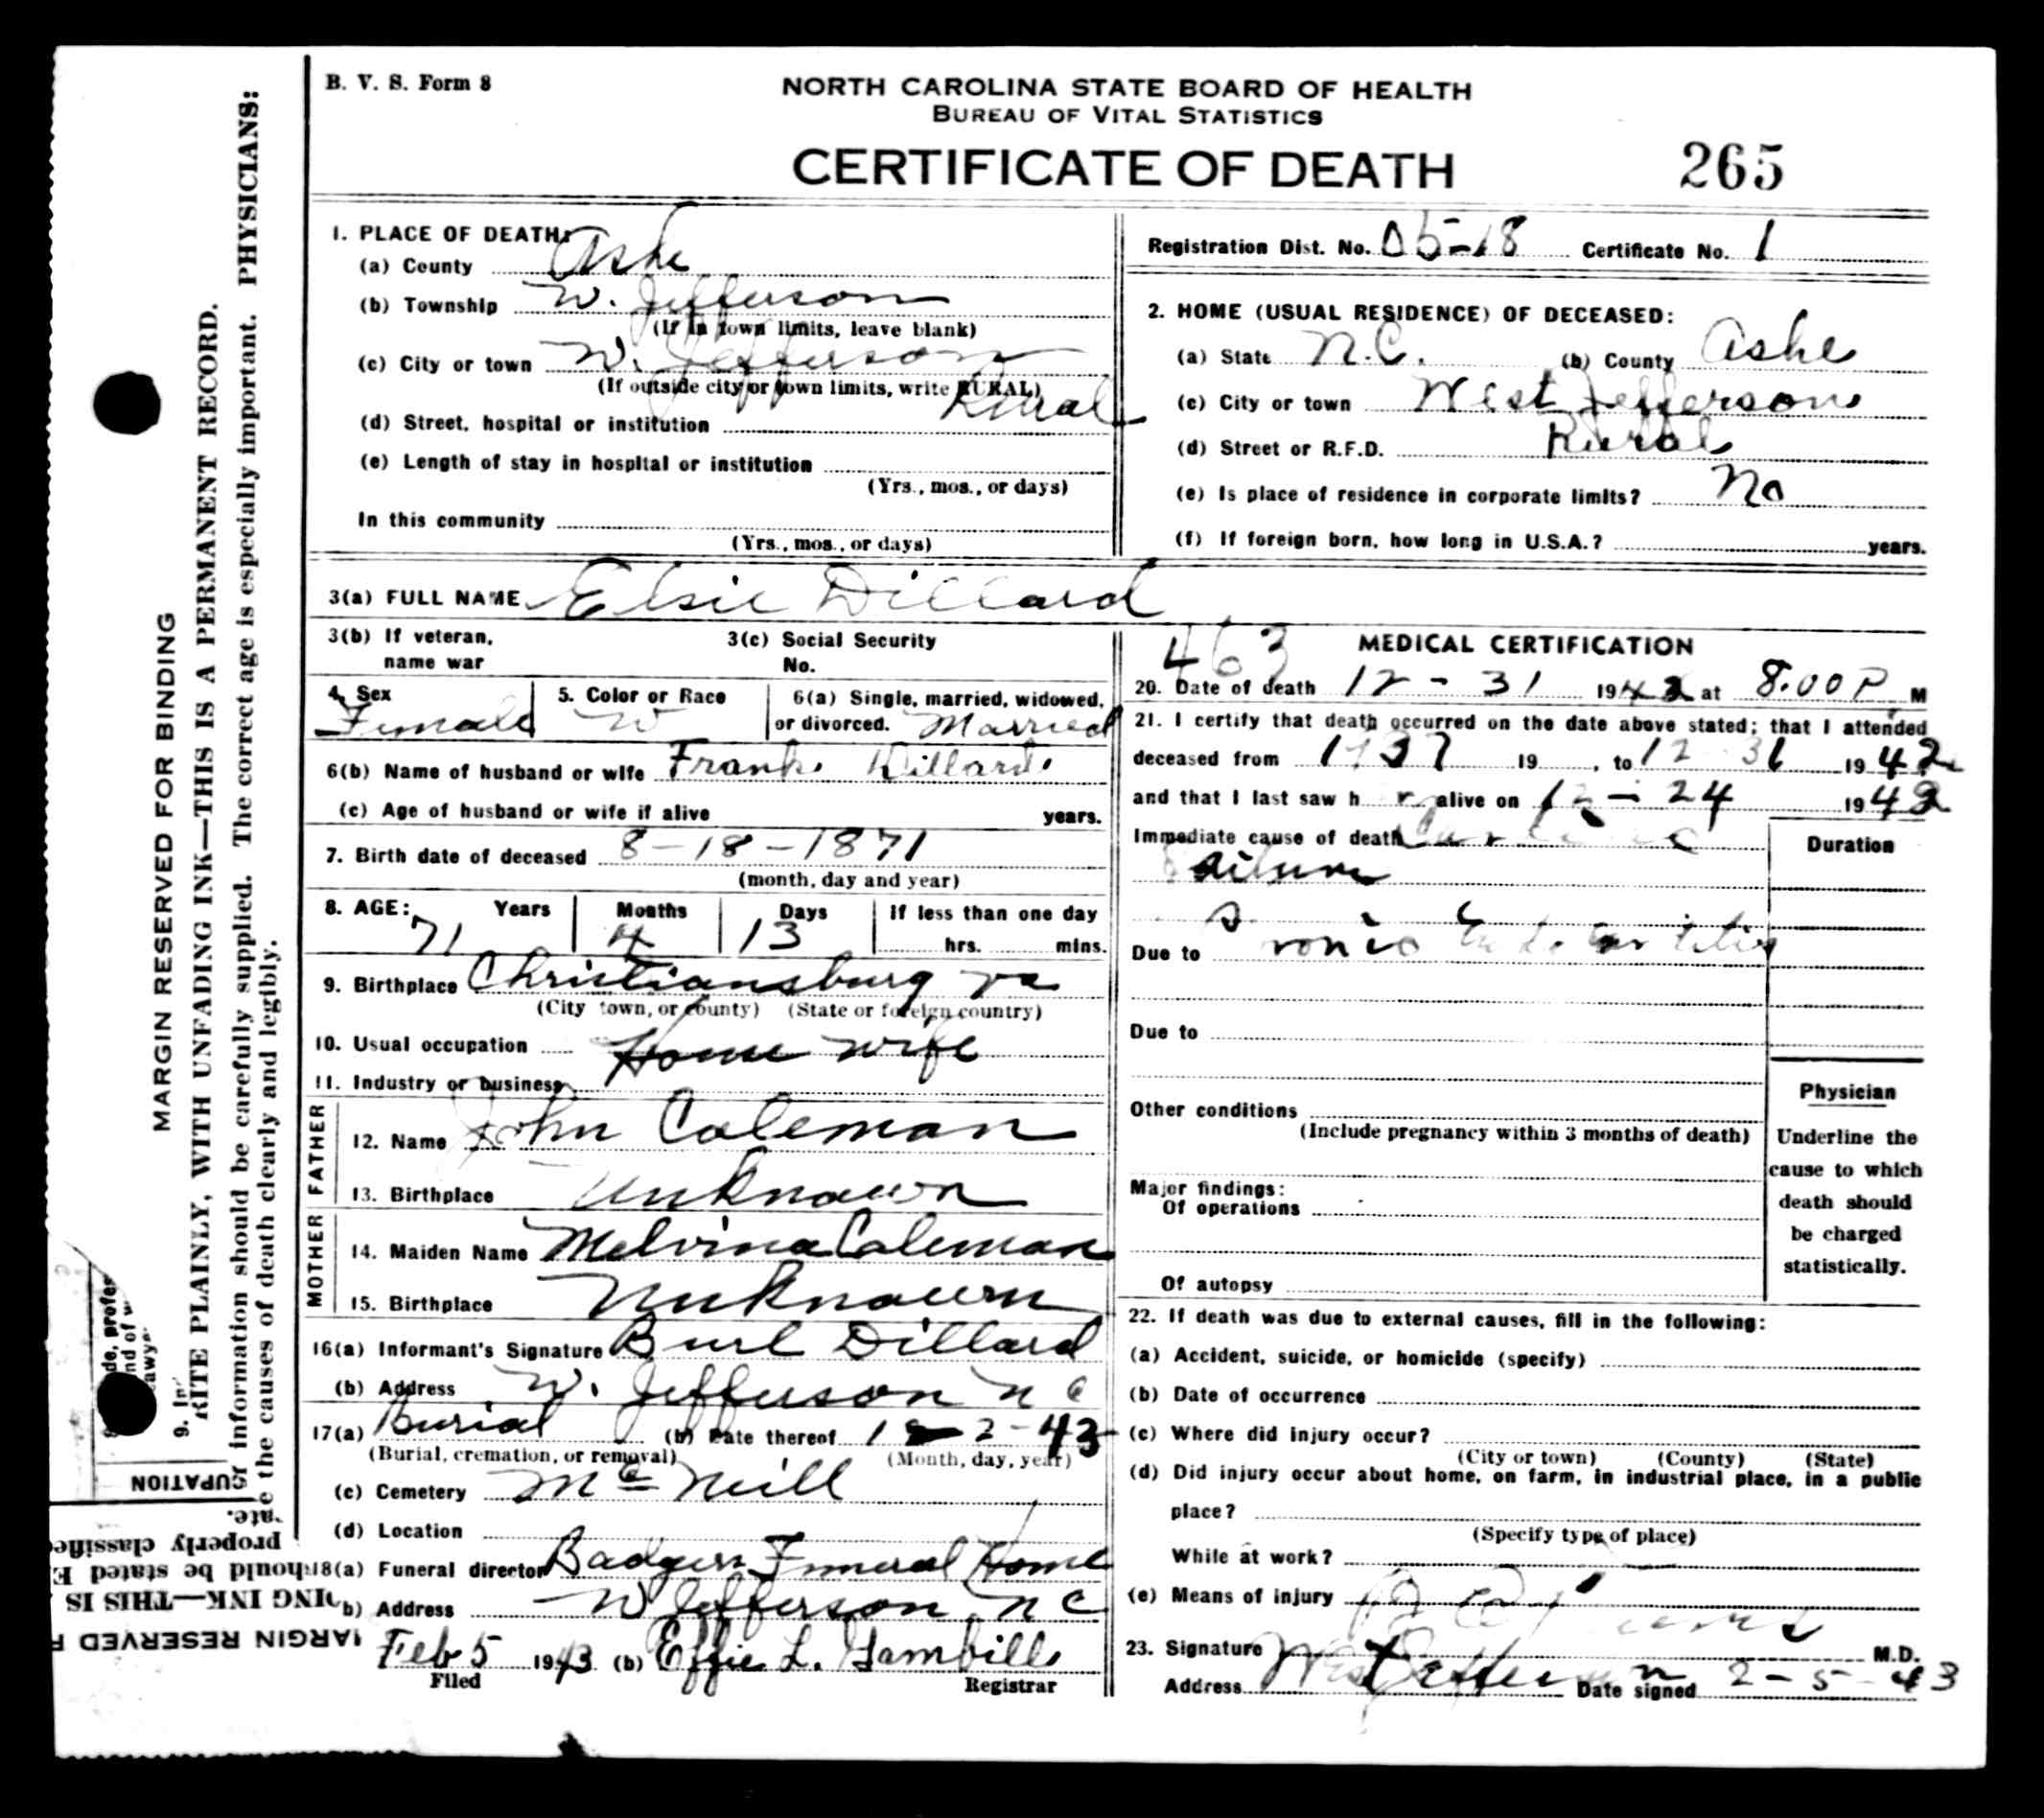 B. V. S. Form 8
NORTH CAROLINA STATE BOARD OF HEALTH
BUREAU OF VITAL STATISTICS
CERTIFICATE OF DEATH 265
1. PLACE OF DEATH:
(a) County Ashe
(b) Township W. Jefferson
(If in town limits, leave blank)
(c) City or town W. Jefferson
(If outside city or town limits, write RURAL)
Rural
(d) Street, hospital or institution
(e) Length of stay in hospital or institution
(Yrs., mos., or days)
In this community
(Yrs., mos., or days)
Registration Dist. No. 05-18 Certificate No. 1
2. HOME (USUAL RESIDENCE) OF DECEASED:
(a) State N.C. (b) County Ashe
(c) City or town West Jefferson
(d) Street or R.F.D. Rural
(e) Is place of residence in corporate limits? No
(f) If foreign born, how long in U.S.A.? years.
3(a) FULL NAME Elsie Dillard
3(b) If veteran, 3(c) Social Security
name war No.
4. Sex 5. Color or Race 6(a) Single, married, widowed,
Female W or divorced. Married
6(b) Name of husband or wife Frank Dillard
(c) Age of husband or wife if alive years.
7. Birth date of deceased 8-18-1871
(month, day and year)
8. AGE: Years Months Days If less than one day
71 4 13 hrs. mins.
9. Birthplace Christiansburg va
(City town, or county) (State or foreign country)
10. Usual occupation Home wife
11. Industry or business
FATHER
12. Name John Coleman
13. Birthplace Unknown
MOTHER
14. Maiden Name Melvina Coleman
15. Birthplace Unknown
16(a) Informant's Signature Burl Dillard
(b) Address W. Jefferson N C
17(a) Burial (b) Date thereof 1 2-43
(Burial, cremation, or removal) (Month, day, year)
(c) Cemetery McNeill
(d) Location
18(a) Funeral director Badger Funeral Home
b) Address W Jefferson, N C
Feb 5 1943 (b) Effie L. Gambill
Filed Registrar
463
MEDICAL CERTIFICATION
20. Date of death 12-31 1942 at 8.00 P. M
21. I certify that death occurred on the date above stated; that I attended
deceased from 19 , to 12 31 1942
and that I last saw h r alive on 12-24 1942
Immediate cause of death Cardiac
Failure
Duration
Due to
Due to
Other conditions
(Include pregnancy within 3 months of death)
Major findings:
Of operations
Of autopsy
Physician
Underline the
cause to which
death should
be charged
statistically.
22. If death was due to external causes, fill in the following:
(a) Accident, suicide, or homicide (specify)
(b) Date of occurrence
(c) Where did injury occur?
(City or town) (County) (State)
(d) Did injury occur about home, on farm, in industrial place, in a public
place?
(Specify type of place)
While at work?
(e) Means of injury
23. Signature M.D.
Address West Jefferson Date signed 2-5-43
MARGIN RESERVED FOR BINDING
RITE PLAINLY, WITH UNFADING INK—THIS IS A PERMANENT RECORD.
of information should be carefully supplied. The correct age is especially important. PHYSICIANS:
te the causes of death clearly and legibly.
UPATION
properly classifie
hould be stated E
ING INK—THIS IS
MARGIN RESERVED F